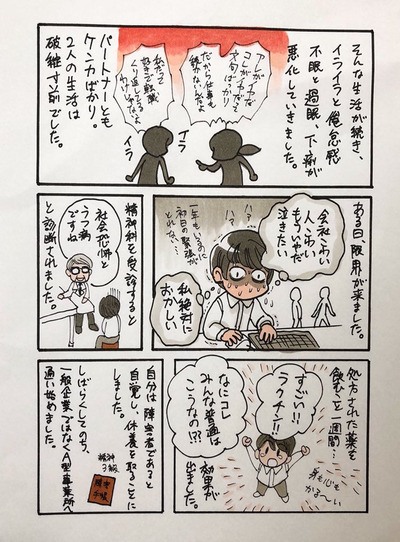 そんな生活が続き、
イライラと倦怠感
不眠と過眠、下痢が
悪化していきました。
アレがイヤだ
コレがイヤだと
文句ばっかり
だから仕事も
続かないんだよ
私だって
好きで転職
くり返してる
わけじゃないよ
イラ
イラ
パートナーとも
ケンカばかり。
2人の生活は
破綻寸前でした。
ある日、限界が来ました。
会社こわい
人こわい
もういやだ
泣きたい
ハァ
ハァ
一年もいるのに
初日の緊張が
とれない…
私絶対に
おかしい
精神科を受診すると
社会恐怖と
うつ病
ですね
と診断されました。
処方された薬を
飲むこと一週間…
すごい!!
ラクチン!!
なにコレ
みんな普通は
こうなの!?
効果が
出ました。
身も心も
かる〜い
自分は障害者であると
自覚し、休養を取ることに
しました。
しばらくしてのち、
一般企業ではなくA型事業所へ
通い始めました。
精神
3級
障害
手帳